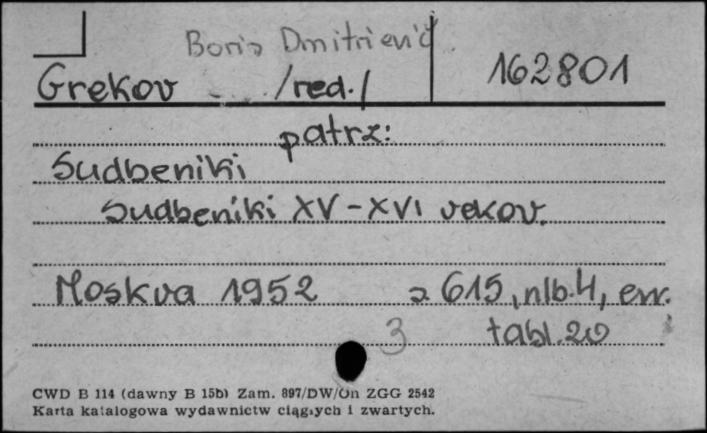 Boris Dmitrievič
Grekov /red./ 162801
patrz:
Sudbeniki
Sudbeniki XV-XVI vekov.
Moskva 1952 s. 615, nlb. 4, err.
3 tabl. 20
CWD B 114 (dawny B 15b) Zam. 897/DW/On ZGG 2542
Karta katalogowa wydawnictw ciągłych i zwartych.